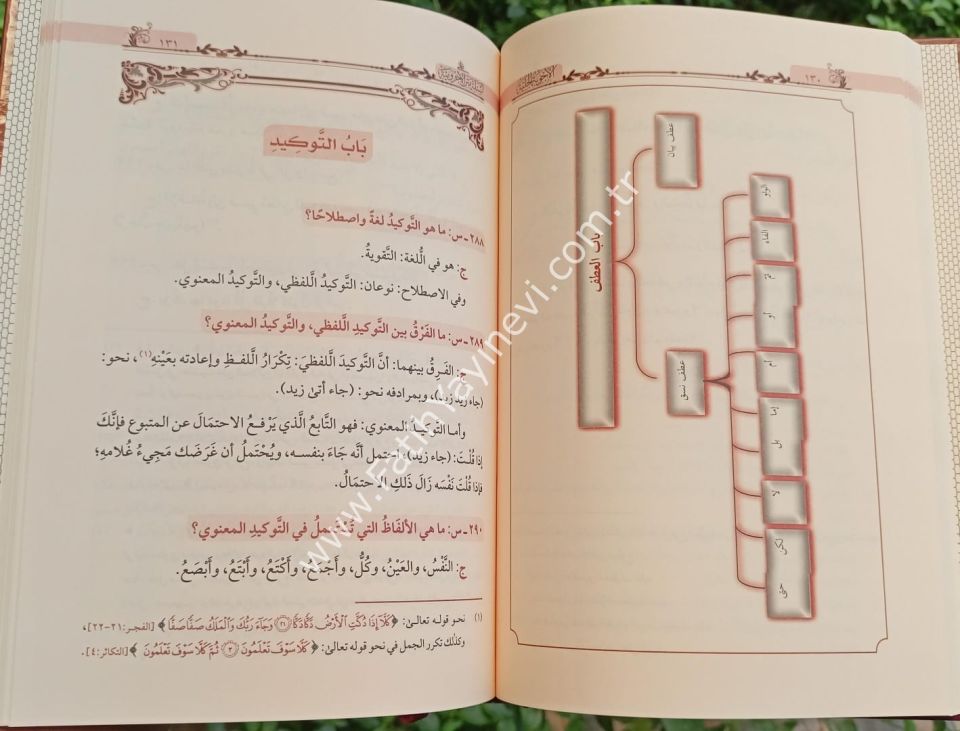 ١٣٠
باب العطف
عطف بيان
عطف نسق
الواو
الفاء
ثم
أو
أم
إما
بل
لا
لكن
حتى
١٣١
بَابُ التَّوكِيدِ
٢٨٨ـ س: ما هو التَّوكيدُ لغةً واصطلاحًا؟
ج: هو في اللُّغة: التَّقويةُ.
وفي الاصطلاح: نوعان: التَّوكيدُ الَّلفظي، والتَّوكيدُ المعنوي.
٢٨٩ـ س: ما الفَرْقُ بين التَّوكيدِ الَّلفظي، والتَّوكيدُ المعنوي؟
ج: الفَرقُ بينهما: أنَّ التَّوكيدَ الَّلفظيَ: تِكْرَارُ اللَّفظِ وإعادته بعَيْنِهِ(١)، نحو:
(جاء زيد زيد)، وبمرادفه نحو: (جاء أتىٰ زيد).
وأما التَّوكيدُ المعنوي: فهو التَّابعُ الَّذي يَرْفعُ الاحتمَالَ عن المتبوع فإنَّكَ
إذا قُلتَ: (جاء زيد) احتمل أنَّه جَاءَ بنفسه، ويُحْتملُ أن غَرَضَك مَجِيءُ غُلامهِ؛
فإذا قُلتَ نَفْسَه زَالَ ذَلكَ الاحتمَالُ.
٢٩٠ـ س: ما هي الألفَاظُ التي تُسْتَعملُ في التَّوكيدِ المعنوي؟
ج: النَّفْسُ، والعَيْنُ، وكُلُّ، وأَجْمَعُ، وأَكْتَعُ، وأَبْتَعُ، وأَبْصَعُ.
(١) نحو قوله تعالىٰ: ﴿كَلَّا إِذَا دُكَّتِ الْأَرْضُ دَكًّا دَكًّا ٢١ وَجَاءَ رَبُّكَ وَالْمَلَكُ صَفًّا صَفًّا﴾ [الفجر: ٢١-٢٢]،
وكذلك تكرر الجمل في نحو قوله تعالىٰ: ﴿كَلَّا سَوْفَ تَعْلَمُونَ ٣ ثُمَّ كَلَّا سَوْفَ تَعْلَمُونَ﴾ [التكاثر: ٤].
www.FatihYayinevi.com.tr